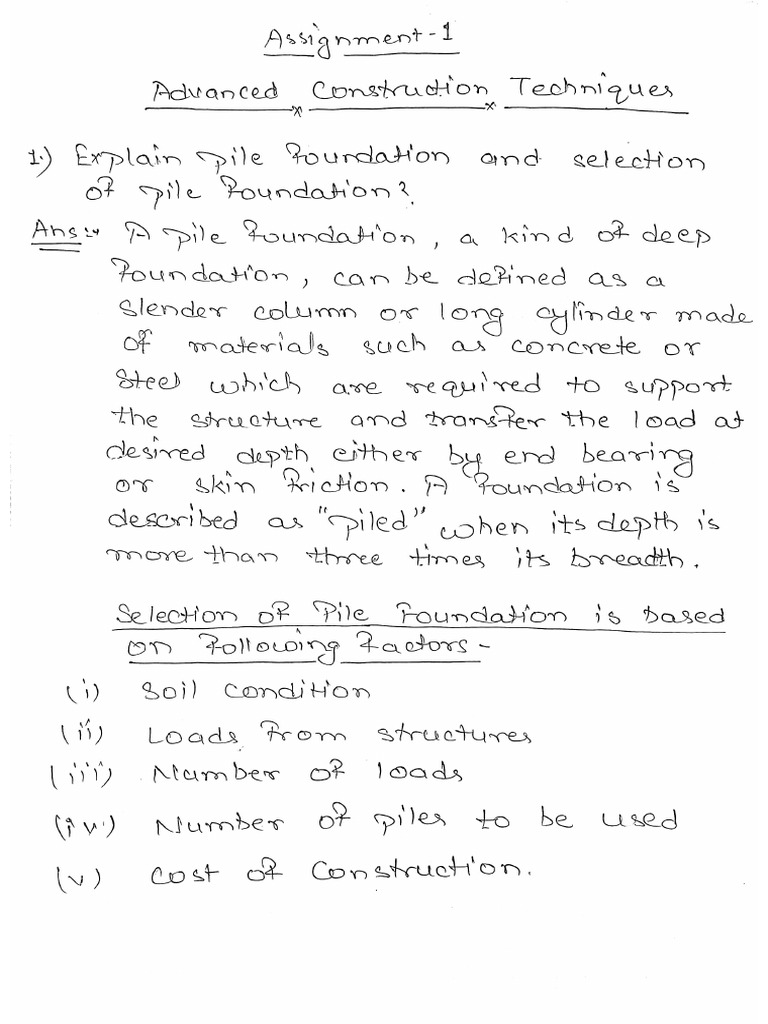 Assignment-1
Advanced Construction Techniques
1.) Explain pile foundation and selection
of pile foundation?
Ans:- A pile foundation, a kind of deep
foundation, can be defined as a
slender column or long cylinder made
of materials such as concrete or
steel which are required to support
the structure and transfer the load at
desired depth either by end bearing
or skin friction. A foundation is
described as "piled" when its depth is
more than three times its breadth.
Selection of Pile Foundation is based
on Following Factors-
(i) Soil condition
(ii) Loads from structures
(iii) Number of loads
(iv) Number of piles to be used
(v) Cost of Construction.